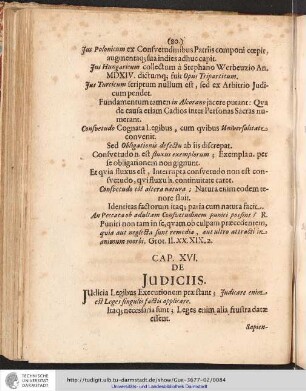 (80.)
Jus Polonicum ex Consvetudinibus Patriis componi cœpit,
augmentaq; sua indies adhuc capit.
Jus Hungaricum collectum à Stephano Werbeuzio An.
MDXIV. dictumq; fuit Opus Tripartitum.
Jus Turcicum scriptum nullum est, sed ex Arbitrio Judi-
cum pendet.
Fundamentum tamen in Alcorano jacere putant: Qva
de causa etiam Cadios inter Personas Sacras nu-
merant.
Consvetudo Cognata Legibus, cum qvibus Universalitate
convenit.
Sed Obligationis defectu ab iis discrepat.
Consvetudo n. est fluxus exemplorum; Exempla a. per
se obligationem non gignunt.
Et qvia fluxus est, Interrupta consvetudo non est con-
svetudo, qvi fluxu h. continuitate caret.
Consvetudo est altera natura; Natura enim eodem te-
nore stat.
Identitas factorum itaq; paria cum natura facit.
An Peccata ob adultam Consvetudinem puniri possint? R.
Puniri non tam in se, qvam ob culpam præcedentem,
quia aut neglecta sunt remedia, aut ultro attracti in
animum morbi. Grot. II. XX. XIX, 2.
CAP. XVI.
DE
JUDICIIS.
Judicia Legibus Executionem præstant; Judicare enim
est Leges singulis factis applicare.
Itaq; necessaria sunt; Leges enim alia frustra datæ
essent.
Sapien-
TECHNISCHE
UNIVERSITÄT
DARMSTADT
http://tudigit.ulb.tu-darmstadt.de/show/Gue-3677-02/0084
Universitäts- und Landesbibliothek Darmstadt